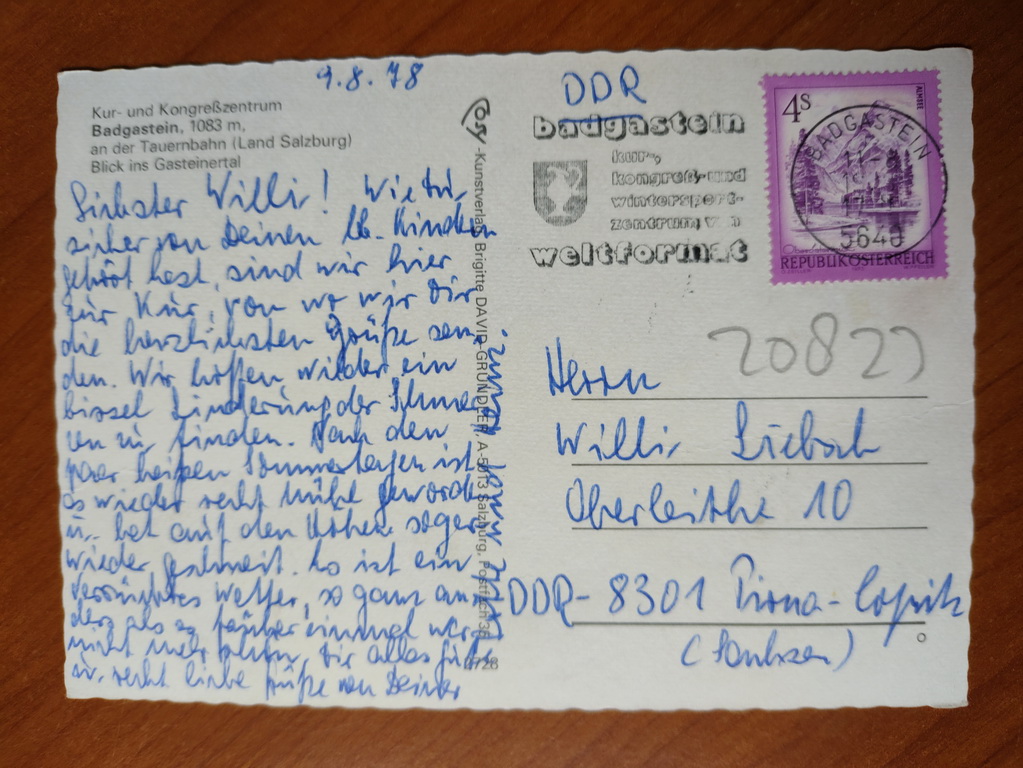 9.8.78
Kur- und Kongreßzentrum
Badgastein, 1083 m,
an der Tauernbahn (Land Salzburg)
Blick ins Gasteinertal
Liebster Willi! Wie Du,
sicher von Deinen lb. Kindern
gehört hast, sind wir hier
zur Kur, von wo wir Dir
die herzlichsten Grüße sen-
den. Wir hoffen, wieder ein
bissel Linderung der Schmer-
zen zu finden. Nach den
paar heißen Sommertagen ist
es wieder recht kühl geworden
u. hat auf den Höhen sogar
wieder geschneit. Es ist ein
verrücktes Wetter, so ganz an-
ders als es früher einmal war.
nicht mehr Dir alles Gute
u. recht liebe Grüße von Deiner
und Heinz
Cosy
-Kunstverlag Brigitte DAVID-GRÜNDLER, A-5013 Salzburg, Postfach 36
DDR
badgastein
kur-,
kongreß- und
wintersport-
zentrum von
weltformat
4S
ALMSEE
BADGASTEIN
5640
REPUBLIK ÖSTERREICH
20822
Herrn
Willi Liebsch
Oberleithe 10
DDR-8301 Pirna-Copitz
(Sachsen)